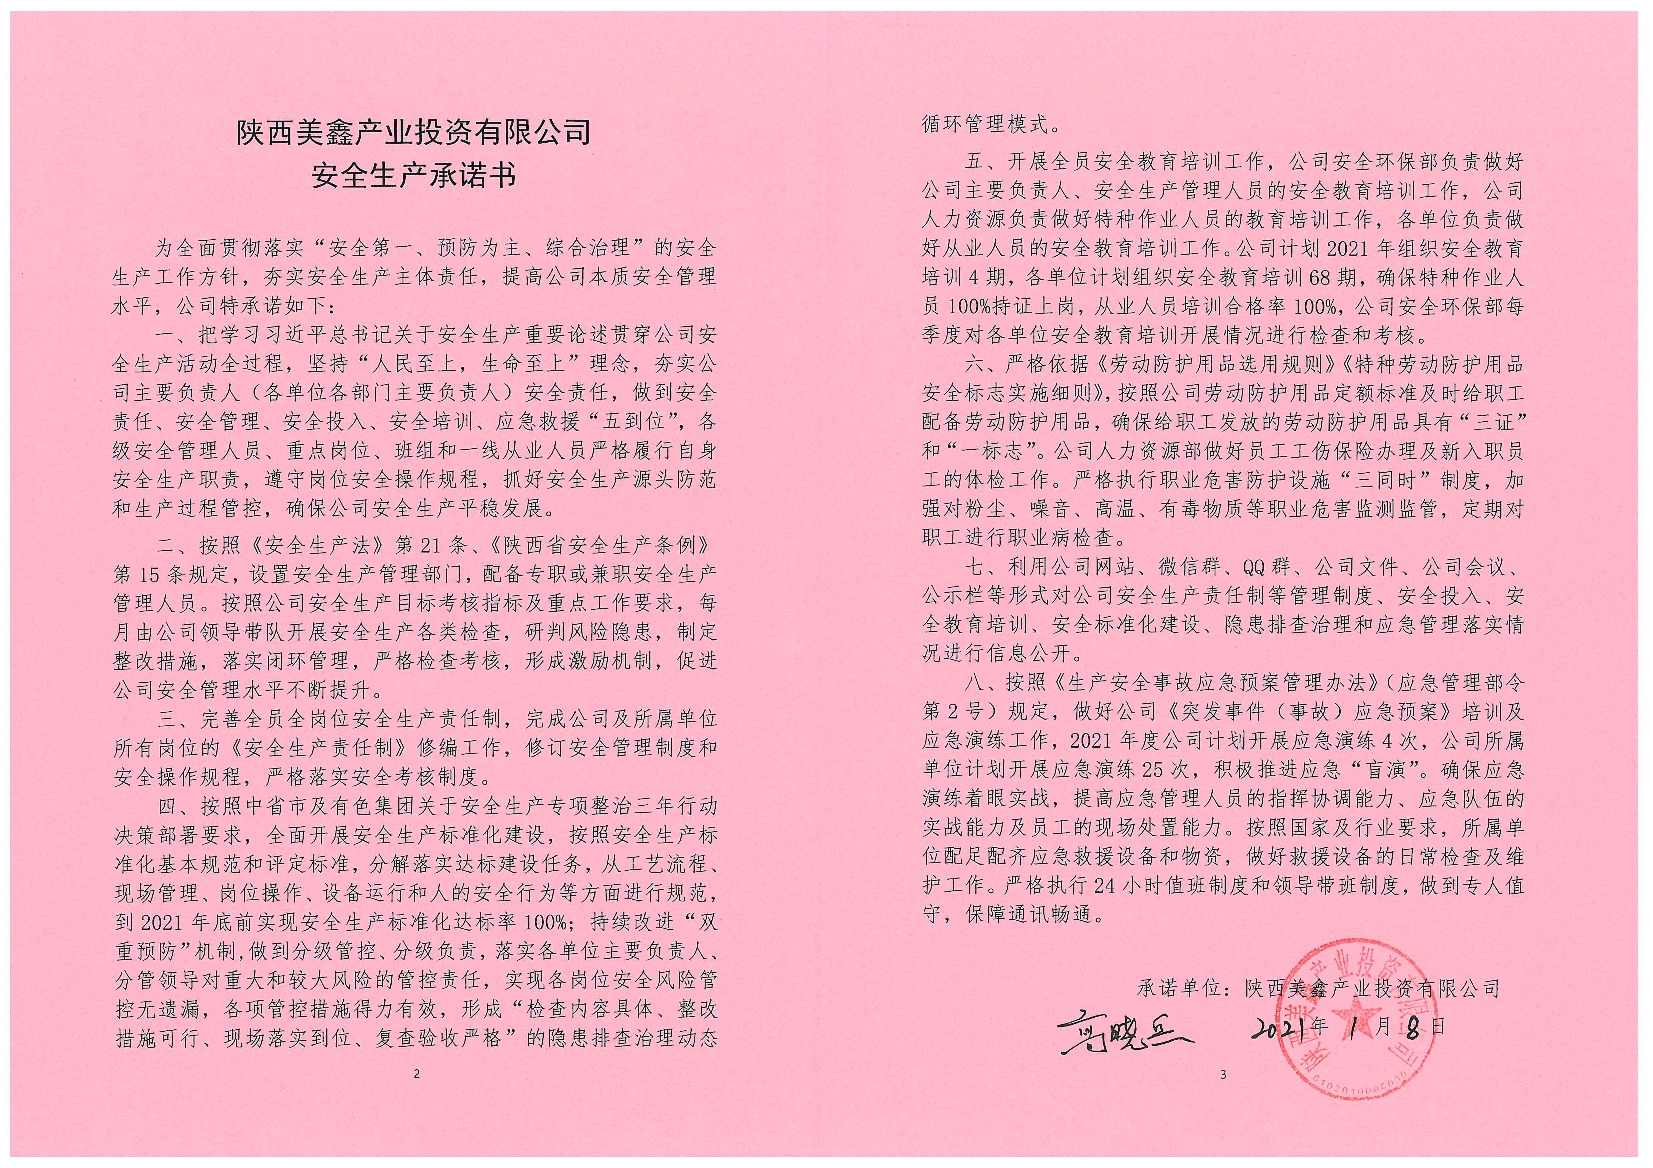 陕西美鑫产业投资有限公司
安全生产承诺书
为全面贯彻落实“安全第一、预防为主、综合治理”的安全
生产工作方针，夯实安全生产主体责任，提高公司本质安全管理
水平，公司特承诺如下：
一、把学习习近平总书记关于安全生产重要论述贯穿公司安
全生产活动全过程，坚持“人民至上，生命至上”理念，夯实公
司主要负责人（各单位各部门主要负责人）安全责任，做到安全
责任、安全管理、安全投入、安全培训、应急救援“五到位”，各
级安全管理人员、重点岗位、班组和一线从业人员严格履行自身
安全生产职责，遵守岗位安全操作规程，抓好安全生产源头防范
和生产过程管控，确保公司安全生产平稳发展。
二、按照《安全生产法》第21条、《陕西省安全生产条例》
第15条规定，设置安全生产管理部门，配备专职或兼职安全生产
管理人员。按照公司安全生产目标考核指标及重点工作要求，每
月由公司领导带队开展安全生产各类检查，研判风险隐患，制定
整改措施，落实闭环管理，严格检查考核，形成激励机制，促进
公司安全管理水平不断提升。
三、完善全员全岗位安全生产责任制，完成公司及所属单位
所有岗位的《安全生产责任制》修编工作，修订安全管理制度和
安全操作规程，严格落实安全考核制度。
四、按照中省市及有色集团关于安全生产专项整治三年行动
决策部署要求，全面开展安全生产标准化建设，按照安全生产标
准化基本规范和评定标准，分解落实达标建设任务，从工艺流程、
现场管理、岗位操作、设备运行和人的安全行为等方面进行规范，
到2021年底前实现安全生产标准化达标率100%；持续改进“双
重预防”机制,做到分级管控、分级负责，落实各单位主要负责人、
分管领导对重大和较大风险的管控责任，实现各岗位安全风险管
控无遗漏，各项管控措施得力有效，形成“检查内容具体、整改
措施可行、现场落实到位、复查验收严格”的隐患排查治理动态
2
循环管理模式。
五、开展全员安全教育培训工作，公司安全环保部负责做好
公司主要负责人、安全生产管理人员的安全教育培训工作，公司
人力资源负责做好特种作业人员的教育培训工作，各单位负责做
好从业人员的安全教育培训工作。公司计划2021年组织安全教育
培训4期，各单位计划组织安全教育培训68期，确保特种作业人
员100%持证上岗，从业人员培训合格率100%，公司安全环保部每
季度对各单位安全教育培训开展情况进行检查和考核。
六、严格依据《劳动防护用品选用规则》《特种劳动防护用品
安全标志实施细则》，按照公司劳动防护用品定额标准及时给职工
配备劳动防护用品，确保给职工发放的劳动防护用品具有“三证”
和“一标志”。公司人力资源部做好员工工伤保险办理及新入职员
工的体检工作。严格执行职业危害防护设施“三同时”制度，加
强对粉尘、噪音、高温、有毒物质等职业危害监测监管，定期对
职工进行职业病检查。
七、利用公司网站、微信群、QQ群、公司文件、公司会议、
公示栏等形式对公司安全生产责任制等管理制度、安全投入、安
全教育培训、安全标准化建设、隐患排查治理和应急管理落实情
况进行信息公开。
八、按照《生产安全事故应急预案管理办法》（应急管理部令
第2号）规定，做好公司《突发事件（事故）应急预案》培训及
应急演练工作，2021年度公司计划开展应急演练4次，公司所属
单位计划开展应急演练25次，积极推进应急“盲演”。确保应急
演练着眼实战，提高应急管理人员的指挥协调能力、应急队伍的
实战能力及员工的现场处置能力。按照国家及行业要求，所属单
位配足配齐应急救援设备和物资，做好救援设备的日常检查及维
护工作。严格执行24小时值班制度和领导带班制度，做到专人值
守，保障通讯畅通。
承诺单位：陕西美鑫产业投资有限公司
高晓兵 2021年1月8日
陕西美鑫产业投资有限公司
3